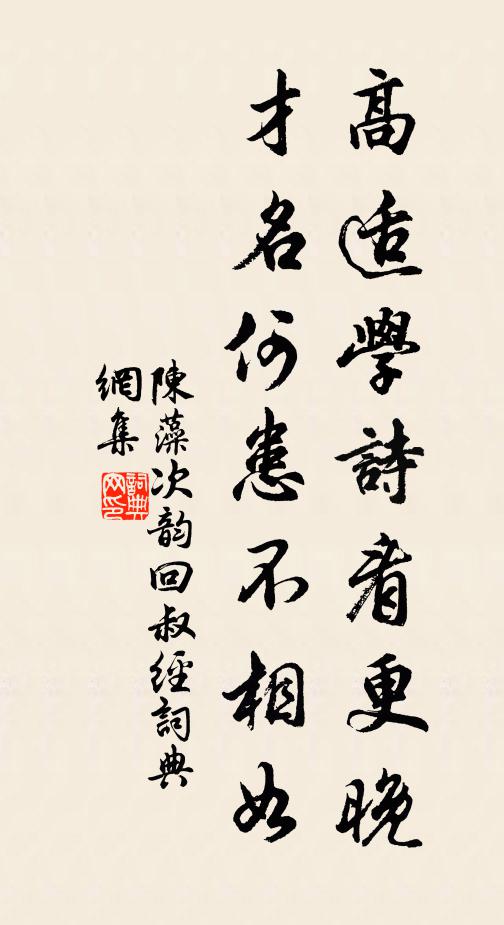 高適學詩看更晚
才名何患不相如
陳藻次韵回叔經詞典
網集
詞典
网印